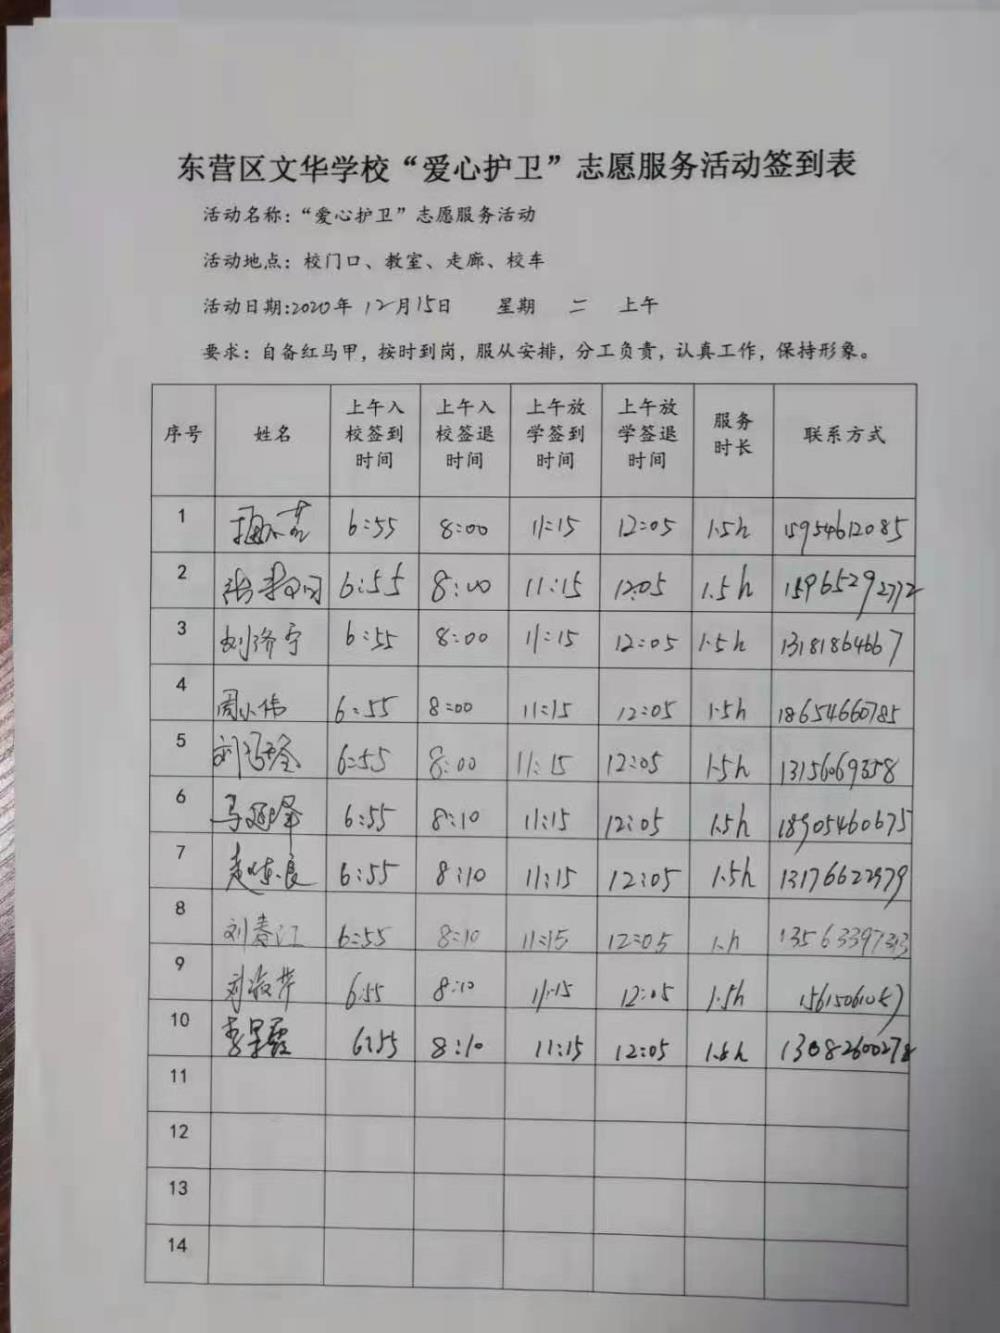 东营区文华学校“爱心护卫”志愿服务活动签到表
活动名称:“爱心护卫”志愿服务活动
活动地点: 校门口、教室、走廊、校车
活动日期:2020年 12月15日 星期 二 上午
要求: 自备红马甲, 按时到岗, 服从安排, 分工负责, 认真工作, 保持形象。
序号 姓名 上午入校签到时间 上午入校签退时间 上午放学签到时间 上午放学签退时间 服务时长 联系方式
1 6:55 8:00 11:15 12:05 1.5h 15954612085
2 6:55 8:00 11:15 12:05 1.5h 15965292772
3 刘济宁 6:55 8:00 11:15 12:05 1.5h 13181864667
4 周小伟 6:55 8:00 11:15 12:05 1.5h 18654660785
5 6:55 8:00 11:15 12:05 1.5h 13156069358
6 6:55 8:10 11:15 12:05 1.5h 18905460675
7 6:55 8:10 11:15 12:05 1.5h 13176622979
8 刘春江 6:55 8:10 11:15 12:05 1.h 13563397313
9 刘淑芹 6:55 8:10 11:15 12:05 1.5h
10 6:55 8:10 11:15 12:05 1.5h 13082600278
11
12
13
14